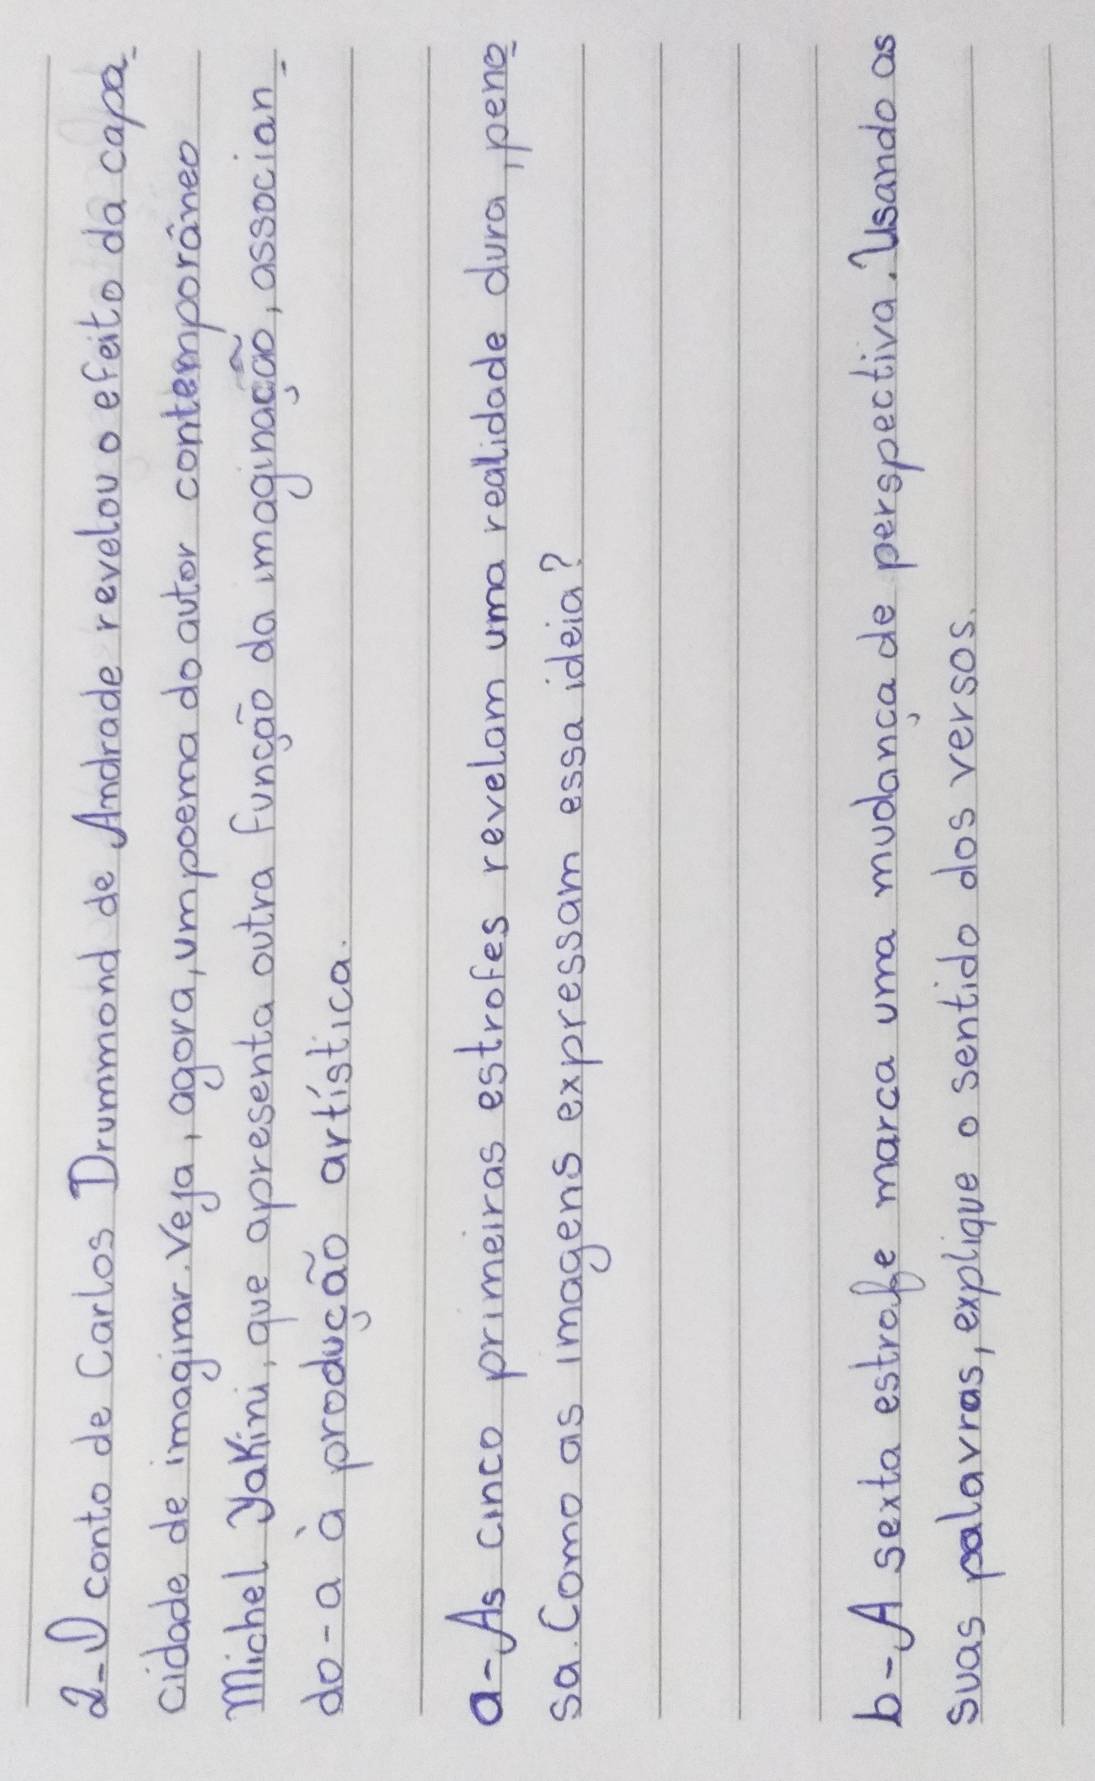 2-O conto de Carlos Drummond de Andrade revelou o efeito da capa-
cidade de imaginar. Veja, agora, um poema do autor contemporâneo
Michel Yakini, que apresenta outra função da imaginação, associan-
do-a à produção artística.
a-As cinco primeiras estrofes revelam uma realidade dura, peno-
sa. Como as imagens expressam essa ideia?
b-A sexta estrofe marca uma mudança de perspectiva. Usando as
suas palavras, explique o sentido dos versos.